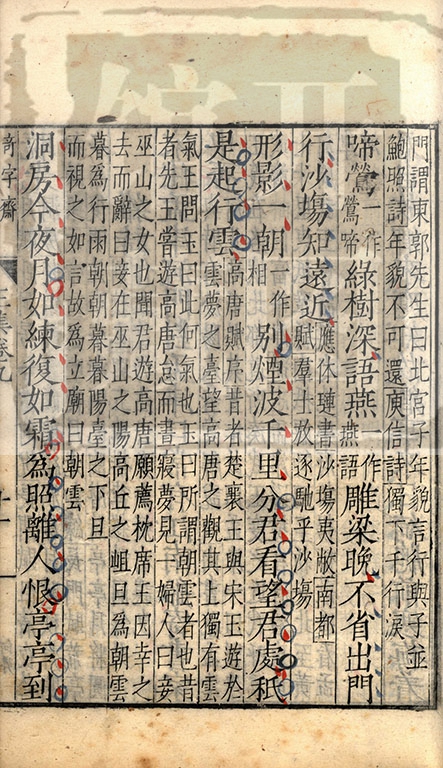 門謂東郭先生曰北宮子年貌言行與子並
鮑照詩年貌不可還庾信詩獨下千行淚
啼鶯一作鶯啼綠樹深語燕一作燕語雕梁晚不省出門
行沙塲知遠近應休璉書沙塲夷敝南都賦羣士放逐馳乎沙塲
形影一朝一作相別煙波千里分君看望君處秪
是起行雲高唐賦序昔者楚襄王與宋玉遊於雲夢之臺望高唐之觀其上獨有雲
氣王問玉曰此何氣也玉曰所謂朝雲者也昔
者先王嘗遊高唐怠而晝寢夢見一婦人曰妾
巫山之女也聞君遊高唐願薦枕席王因幸之
去而辭曰妾在巫山之陽高丘之岨旦為朝雲
暮為行雨朝朝暮暮陽臺之下旦
而視之如言故為立廟曰朝雲
洞房今夜月如練復如霜為照離人恨亭亭到
奇字齋